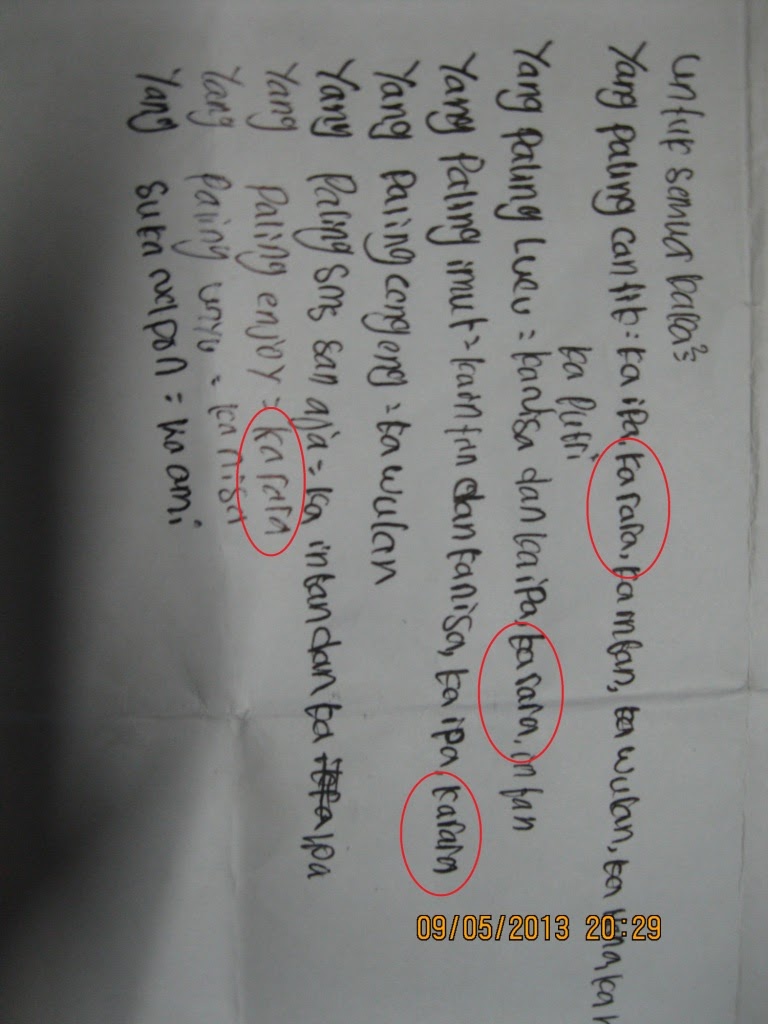 untuk semua kaka²
Yang paling cantik = ka ipa, ka rara, ka intan, ka wulan, ka
ka putri
Yang paling Lucu = ka nisa dan ka ipa, ka rara, intan
Yang paling imut = ka intan dan ka nisa, ka ipa, ka rara
Yang paling cengeng = ka wulan
Yang paling sms san aja = ka intan dan ka ipa
Yang paling enjoy = ka rara
Yang paling unyu = ka nisa
Yang suka nelpon = ka ami
09/05/2013 20:29